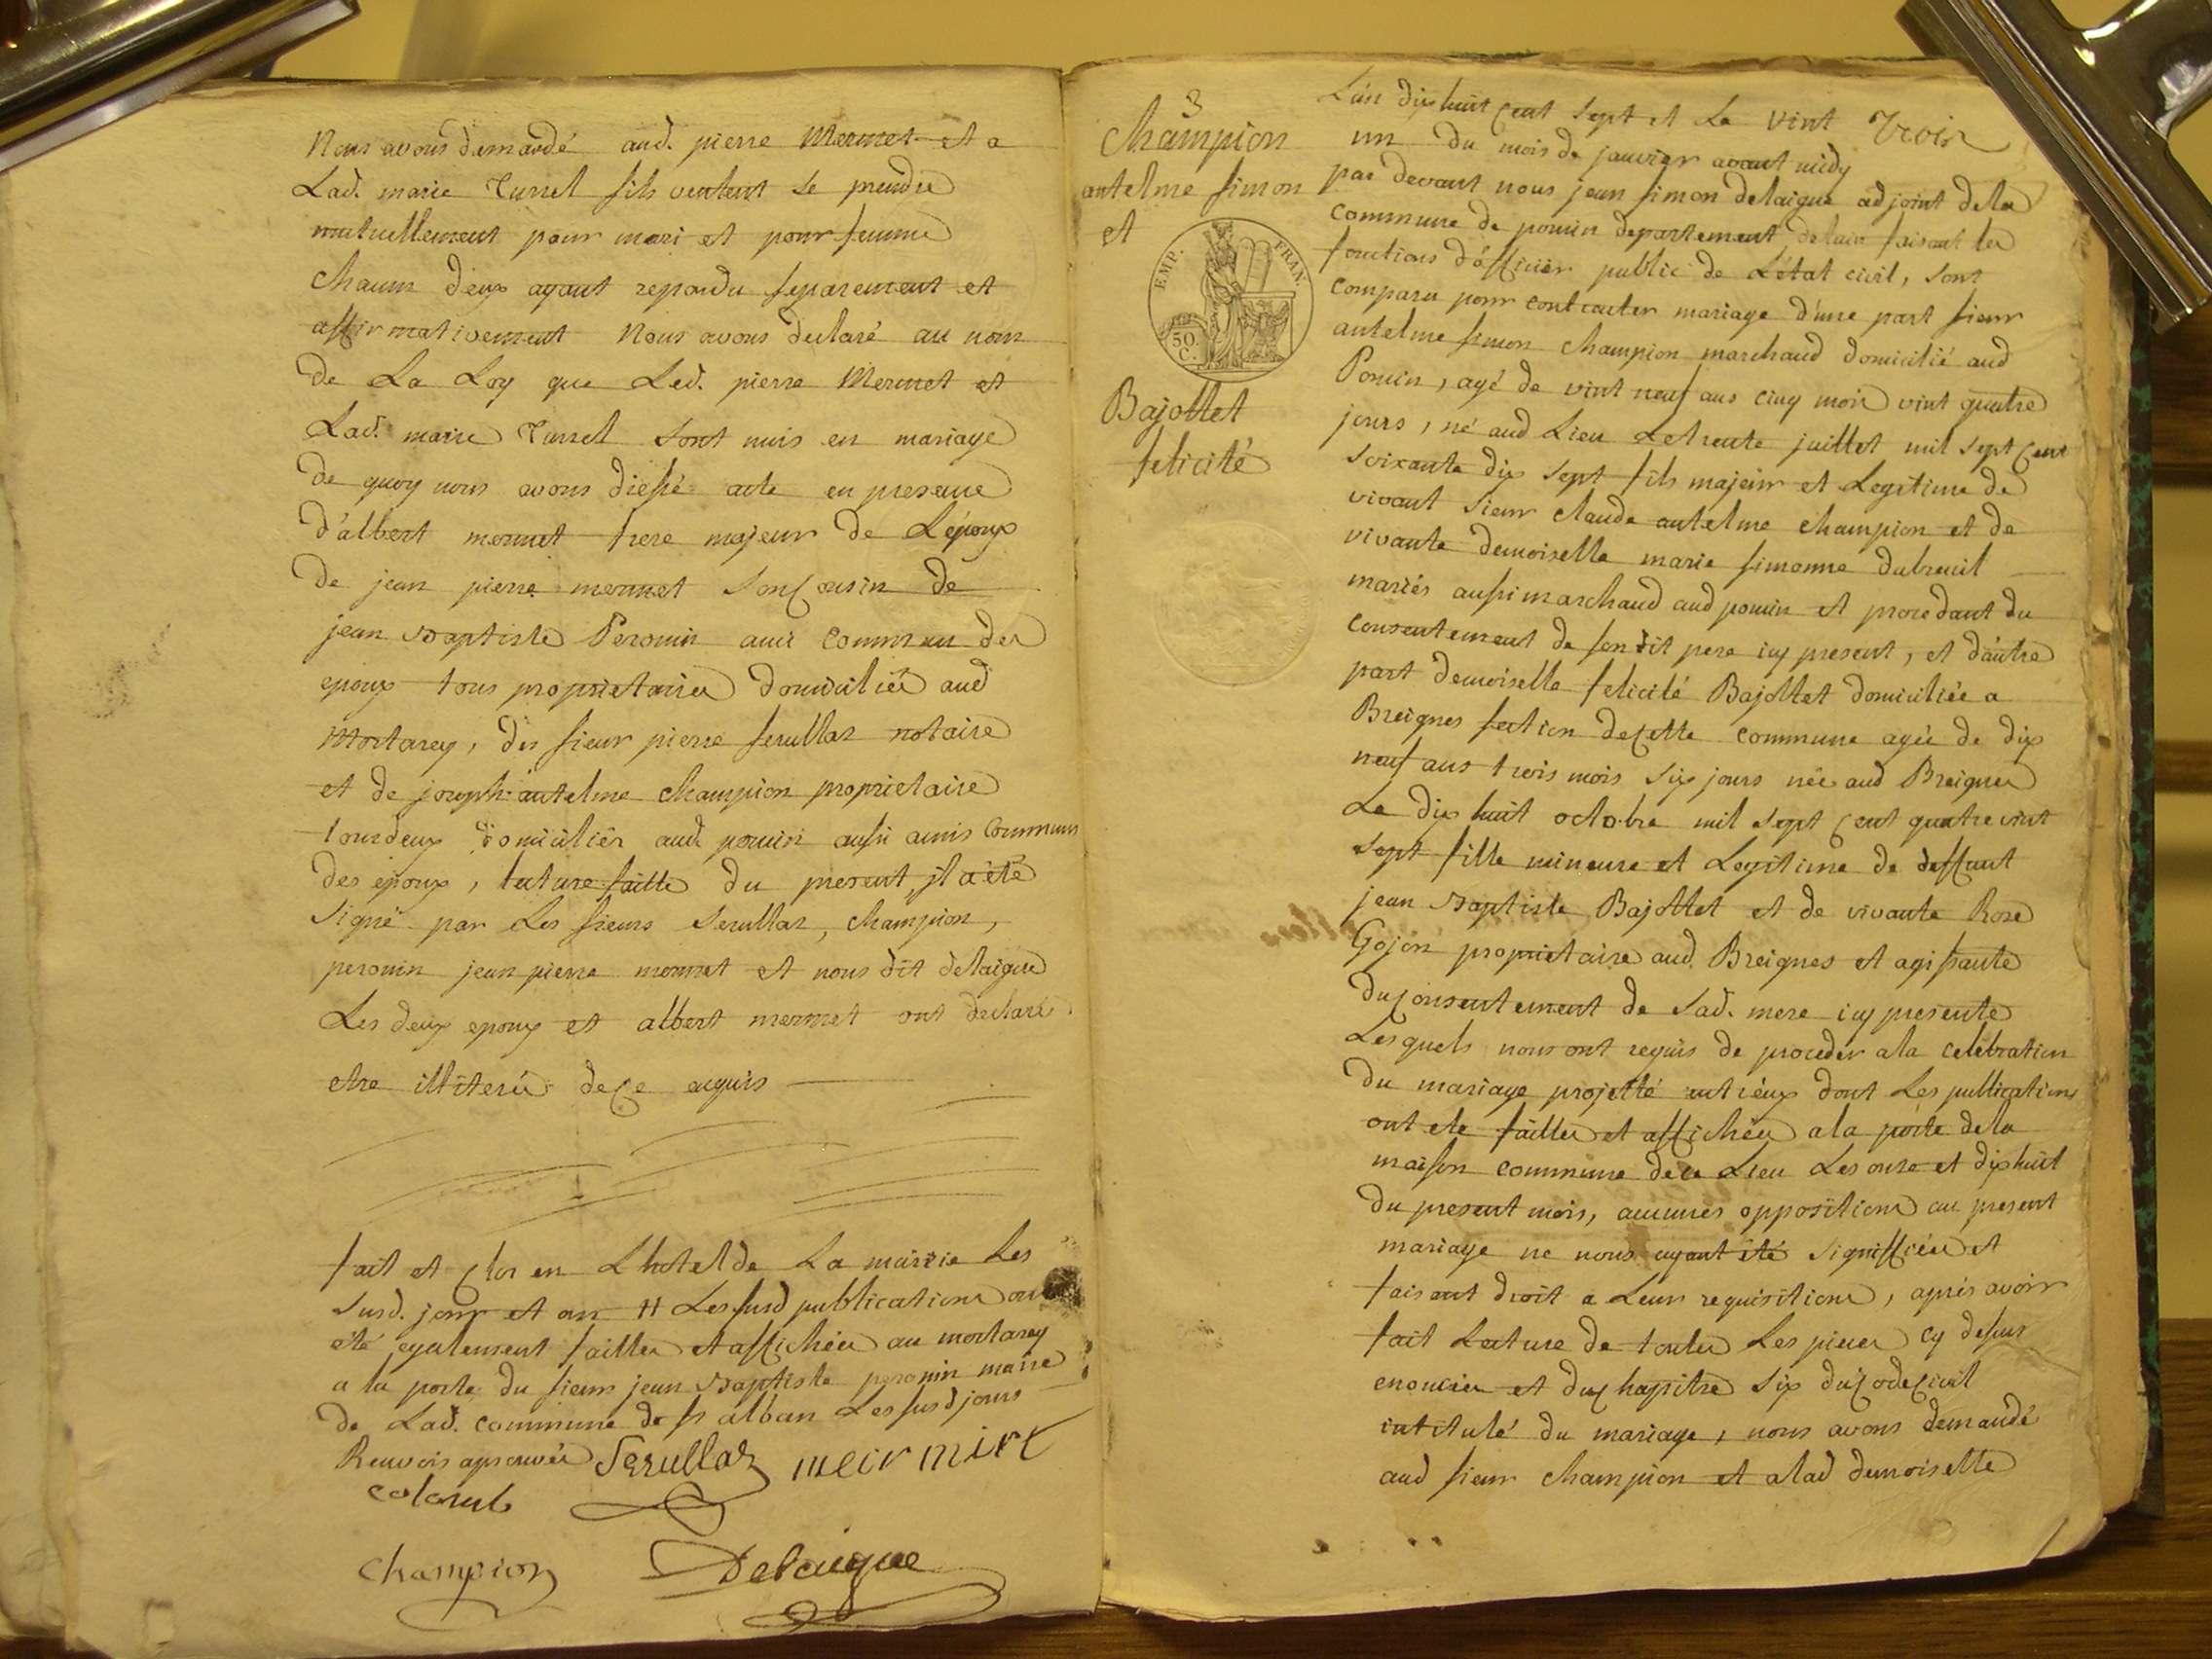 Nous avons demandé aud. pierre Mermet et a
Lad. marie Turrel sils veulent se prendre
mutuellement pour mari et pour femme
chacun deux ayant repondu separement et
affirmativement Nous avons declaré au nom
de La Loy que Led. pierre Mermet et
Lad. marie Turrel sont unis en mariage
de quoy nous avons dressé acte en presence
d'albert mermet frere majeur de Lépoux
de jean pierre mermet son cousin de
jean Baptiste Peronin ami commun des
epoux tous proprietaires domiciliés aud
Mortarey, du sieur pierre serullaz notaire
et de joseph antelme champion proprietaire
tous deux domiciliés aud. poncin aussi amis communs
des epoux, lecture faitte du present, il a été
signé par Les sieurs serullaz, champion,
peronin jean pierre mermet et nous dit delaigue
Les deux epoux et albert mermet ont declarés
etre illiterés de ce acquis
fait et clos en Lhotel de La mairie Les
susd. jour et an # Les susd publications ont
été egalement faittes et affichées au mortarey
a la porte du sieur jean Baptiste peronin maire
de Lad. commune de st alban Les susd jours
Renvois aprouvés Serullaz meirmirt
colomb
Champion Delaigue
3
Champion
antelme simon
et
EMP. FRAN.
50.
C.
Bajollet
felicité
L'an dix huit cent sept et Le vint Trois
un du mois de janvier avant midy
par devant nous jean simon delaigue adjoint de la
commune de poncin departement de lain faisant les
fonctions d'officier public de L'état civil, sont
comparu pour contracter mariage d'une part sieur
antelme simon champion marchand domicilié aud
Poncin, agé de vint neuf ans cinq mois vint quatre
jours, né aud Lieu Le trente juillet mil sept cent
soixante dix sept fils majeur et Legitime de
vivant sieur claude antelme champion et de
vivante demoiselle marie simonne dubreuil
mariés aussi marchand aud poncin et procedant du
consentement de son dit pere icy present, et d'autre
part demoiselle felicité Bajollet domiciliée a
Breignes section de cette commune agée de dix
neuf ans trois mois six jours née aud Breignes
Le dix huit octobre mil sept cent quatre vint
sept fille mineure et Legitime de deffunt
jean Baptiste Bajollet et de vivante Rose
Gojon proprietaire aud. Breignes et agissante
du consentement de sad. mere icy presente
Lesquels nous ont requis de proceder a la celébration
du mariage projetté entr'éux dont Les publications
ont ete faittes et affichées a la porte de la
maison commune de ce Lieu Les onze et dix huit
du present mois, aucunes oppositions au present
mariage ne nous ayant été signiffiées et
faisant droit a Leur requisitions, aprés avoir
fait Lecture de toutes Les pieces cy dessus
enoncées et du chapitre six du code civil
intitulé du mariage, nous avons demandé
aud sieur champion et a lad demoiselle